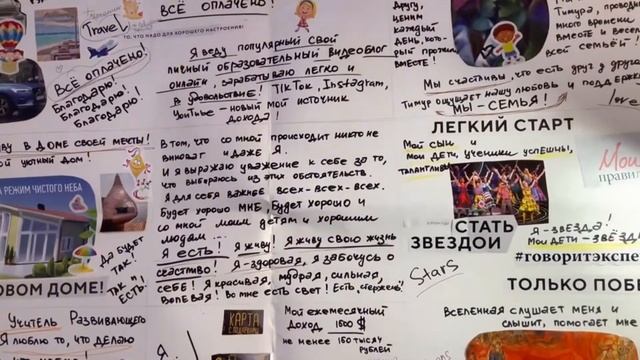 ВСЁ ОПЛАЧЕНО!
Travel
ТО, ЧТО НАДО ДЛЯ ХОРОШЕГО НАСТРОЕНИЯ!
ВСЁ ОПЛАЧЕНО!
Благодарю!
Благодарю!
Благодарю!
Я веду популярный свой
личный образовательный видеоблог
онлайн, зарабатываю легко и
в удовольствие! TikTok, Instagram,
YouTube – новый мой источник
дохода!
Другу,
ценим
каждый
день,
вместе!
Тимура,
много времени
вместе и весел
всей семьёй!
Мы счастливы, что есть друг у друга
Тимур ощущает нашу любовь и поддерж
МЫ – СЕМЬЯ!
love
ву в ДОМЕ СВОЕЙ МЕЧТЫ!
ой уютный дом!
РЕЖИМ ЧИСТОГО НЕБА
ДА БУДЕТ
ТАК!
ТАК И
ЕСТЬ!
ОВОМ ДОМЕ!
В том, что со мной происходит никто не
виноват и даже Я.
И я выражаю уважение к себе за то,
что выбираюсь из этих обстоятельств.
Я для себя важнее всех-всех-всех.
Будет хорошо мне, будет хорошо и
со мной моим детям и хорошим
людям.
Я есть! Я живу! Я живу свою жизнь
счастливо! Я – здоровая, я забочусь о
себе! Я красивая, мудрая, сильная,
волевая! Во мне есть свет! Есть „стержень"!
ЛЕГКИЙ СТАРТ
Мой сын и
мои дети, ученики успешны,
талантливы
Мои
прави
СТАТЬ
ЗВЕЗДОЙ
Stars
Я – ЗВЕЗДА!
Мои дети – ЗВЁЗД
#говоритэкспе
ТОЛЬКО ПОБЕ
Вселенная слушает меня и
слышит, помогает мне
Учитель Развивающего
Я люблю то, что делаю
КАРТА
Я.
Мой ежемесячный
доход 1500 $
не менее 150 тысяч
рублей